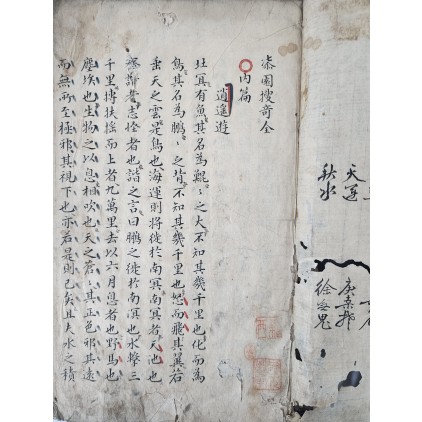 天運
秋水
庚桑楚
徐无鬼
漆園搜奇全
內篇
逍遙遊
北冥有魚其名為鯤〻之大不知其幾千里也化而為
鳥其名為鵬〻之背不知其幾千里也怒而飛其翼若
垂天之雲是鳥也海運則將徙於南冥南冥者天池也
齊諧者志怪者也諧之言曰鵬之徙於南溟也水擊三
千里摶扶搖而上者九萬里去以六月息者也野馬也
塵埃也生物之以息相吹也天之蒼〻其正色邪其遠
而無所至極邪其視下也亦若是則已矣且夫水之積